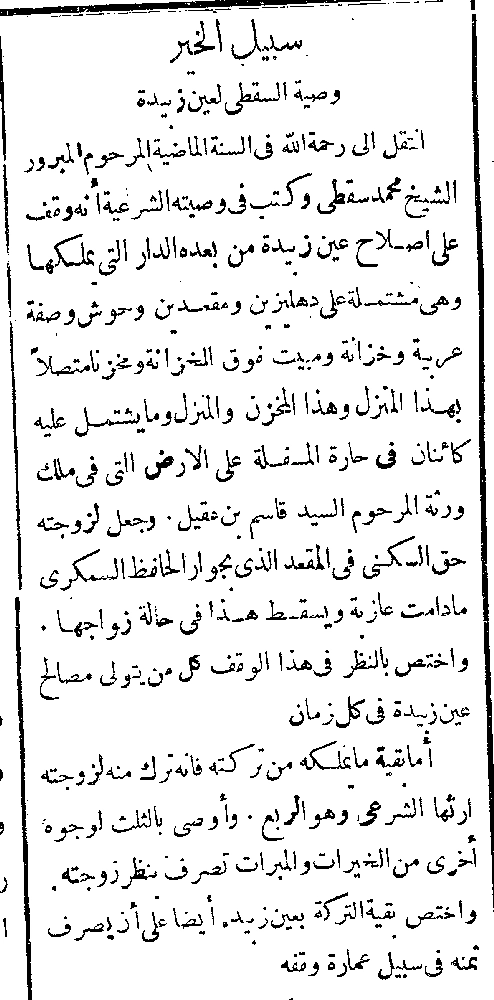 سبيل الخير
وصية السقطى لعين زبيدة
انتقل الى رحمة الله فى السنة الماضية المرحوم المبرور
الشيخ محمد سقطى وكتب فى وصيته الشرعية أنه وقف
على اصلاح عين زبيدة من بعده الدار التى يملكها
وهى مشتملة على دهليزين ومقعدين وحوش وصفة
عربية وخزانة ومبيت فوق الخزانة ومخزنا متصلاً
بهذا المنزل وهذا المخزن والمنزل وما يشتمل عليه
كائنان فى حارة المسفلة على الارض التى فى ملك
ورثة المرحوم السيد قاسم بن عقيل . وجعل لزوجته
حق السكنى فى المقعد الذى بجوار الحافظ السمكرى
مادامت عازبة ويسقط هذا فى حالة زواجها .
واختص بالنظر فى هذا الوقف كل من يتولى مصالح
عين زبيدة فى كل زمان
أما بقية ما يملكه من تركته فانه ترك منه لزوجته
ارثها الشرعى وهو الربع . وأوصى بالثلث لوجوه
أخرى من الخيرات والمبرات تصرف بنظر زوجته .
واختص بقية التركة بعين زبيده أيضا على أن يصرف
ثمنه فى سبيل عمارة وقفه